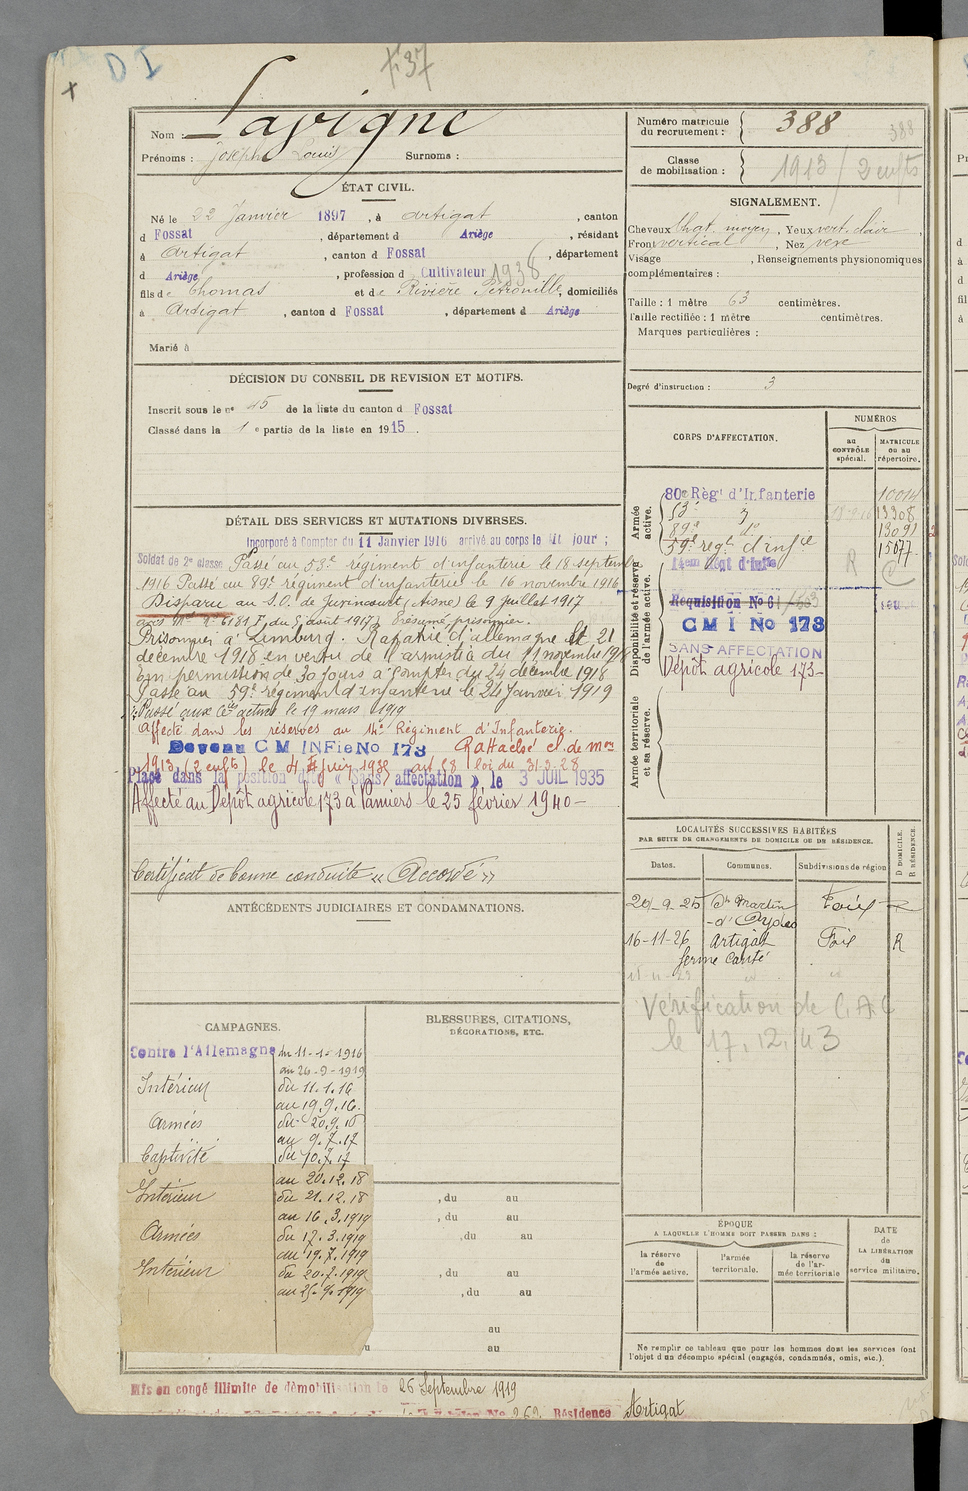 D I
+ 37
Nom : Lavigne
Prénoms : Joseph Louis Surnoms :
ÉTAT CIVIL.
Né le 22 Janvier 1897, à Artigat, canton
d Fossat, département d Ariège, résidant
à Artigat, canton d Fossat, département
d Ariège, profession d Cultivateur 1938
fils de Thomas et de Rivière Pétronille, domiciliés
à Artigat, canton d Fossat, département d Ariège
Marié à
DÉCISION DU CONSEIL DE REVISION ET MOTIFS.
Inscrit sous le n° 45 de la liste du canton d Fossat
Classé dans la 1 e partie de la liste en 1915.
DÉTAIL DES SERVICES ET MUTATIONS DIVERSES.
Incorporé à compter du 11 Janvier 1916 arrivé au corps le dit jour ;
Soldat de 2e classe Passé au 53e régiment d'infanterie le 18 septembre
1916 Passé au 89e régiment d'infanterie le 16 novembre 1916
Disparu au S.O. de Juvincourt (Aisne) le 9 Juillet 1917
du 8 août 1917 Présumé prisonnier.
Prisonnier à Limburg. Rapatrié d'allemagne le 21
décembre 1918 en vertu de l'armistice du 11 novembre 1918
En permission de 30 jours à compter du 24 décembre 1918
Passé au 59e régiment d'infanterie le 24 Janvier 1919
Passé aux Cies actives le 19 mars 1919
affecté dans les réserves au 14e Régiment d'Infanterie.
Devenu C M INFie No 173 Rattaché cl. de mon
1913 (2 enfts) le 4 Juin 1932 art 58 loi du 31-3-28
Placé dans la position dite « Sans affectation » le 3 JUIL 1935
Affecté au Dépôt agricole 173 à Pamiers le 25 février 1940 -
Certificat de bonne conduite « Accordé »
ANTÉCÉDENTS JUDICIAIRES ET CONDAMNATIONS.
CAMPAGNES.
Contre l'Allemagne du 11-1-1916
au 26-9-1919
Intérieur du 11.1.16
au 19.9.16.
Armées du 20.9.16
au 9.7.17
Captivité du 10.7.17
au 20.12.18
Intérieur du 21.12.18
au 16.3.1919
Armées du 17.3.1919
au 19.7.1919
Intérieur du 20.7.1919
au 25.9.1919
BLESSURES, CITATIONS,
DÉCORATIONS, ETC.
, du au
, du au
, du au
, du au
, du au
au
u au
Mis en congé illimité de démobilisation le 26 Septembre 1919
No 262 Résidence Artigat
Numéro matricule
du recrutement : 388 388
Classe
de mobilisation : 1913 / 2 enfts
SIGNALEMENT.
Cheveux chat. moyen, Yeux vert clair
Front vertical, Nez vexe
Visage , Renseignements physionomiques
complémentaires :
Taille : 1 mètre 63 centimètres.
Taille rectifiée : 1 mètre centimètres.
Marques particulières :
Degré d'instruction : 3
CORPS D'AFFECTATION.
NUMÉROS
au
CONTRÔLE
spécial.
MATRICULE
ou au
répertoire.
Armée
active.
80e Règt d'Infanterie 10014
53e " 13308
89e do 13091
59e regt d'infie 15677
Disponibilité et réserve
de l'armée active.
14em Régt d'Infie R
Requisition No 61
C M I No 173
SANS AFFECTATION
Dépôt agricole 173 -
Armée territoriale
et sa réserve.
LOCALITÉS SUCCESSIVES HABITÉES
PAR SUITE DE CHANGEMENTS DE DOMICILE OU DE RÉSIDENCE.
Dates. Communes. Subdivisions de région
D DOMICILE.
R RÉSIDENCE.
20-9-25 St Martin Foix R
-d'Oydes
16-11-26 Artigat Foix R
ferme Carité
Vérification de C.A.C
le 17.12.43
ÉPOQUE
A LAQUELLE L'HOMME DOIT PASSER DANS :
la réserve
de
l'armée active.
l'armée
territoriale.
la réserve
de l'ar-
mée territoriale
DATE
de
LA LIBÉRATION
du
service militaire.
Ne remplir ce tableau que pour les hommes dont les services font
l'objet d'un décompte spécial (engagés, condamnés, omis, etc.).